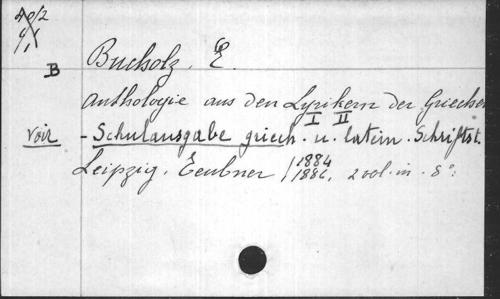 Bucholz, E.
B
Anthologie aus den Lyrikern der Griechen
I II
voir - Schulausgabe griech. u. latein. Schriftst.
Leipzig, Teubner 1884
1886, 2 vol. in-8°.